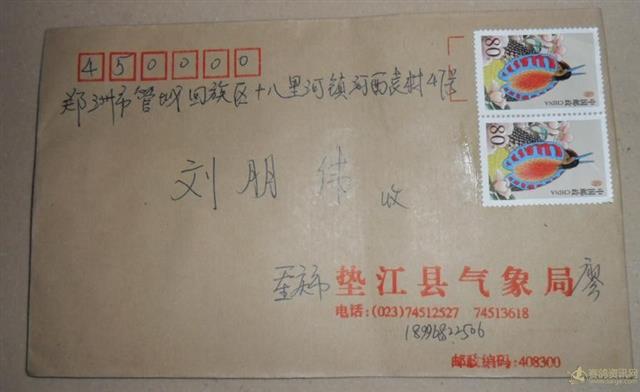 450000
郑洲市管城回族区十八里河镇河西袁村4号
刘朋伟 收
重庆市 垫江县气象局 廖
电话:(023)74512527 74513618
18996822506
邮政编码:408300
80
中国邮政 CHINA
80
中国邮政 CHINA
赛鸽资讯网